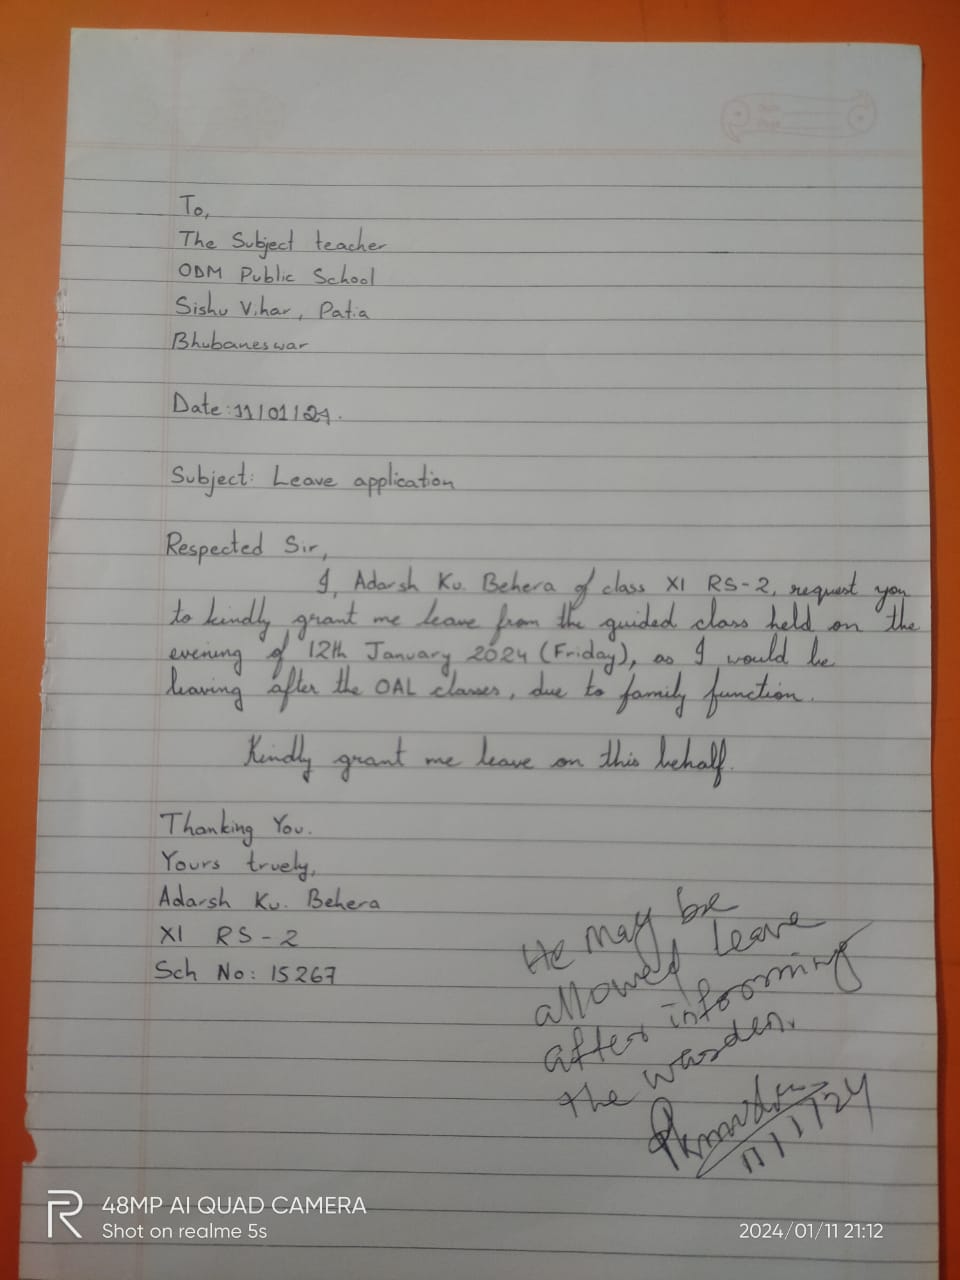 To,
The Subject teacher
ODM Public School
Sishu Vihar, Patia
Bhubaneswar
Date: 11/01/24.
Subject: Leave application
Respected Sir,
I, Adarsh Ku. Behera of class XI RS-2, request you
to kindly grant me leave from the guided class held on the
evening of 12th January 2024 (Friday), as I would be
leaving after the OAL classes, due to family function.
Kindly grant me leave on this behalf.
Thanking You.
Yours truely,
Adarsh Ku. Behera
XI RS-2
Sch No: 15267
He may be
allowed leave
after informing
the warden.
11/1/24
48MP AI QUAD CAMERA
Shot on realme 5s
2024/01/11 21:12